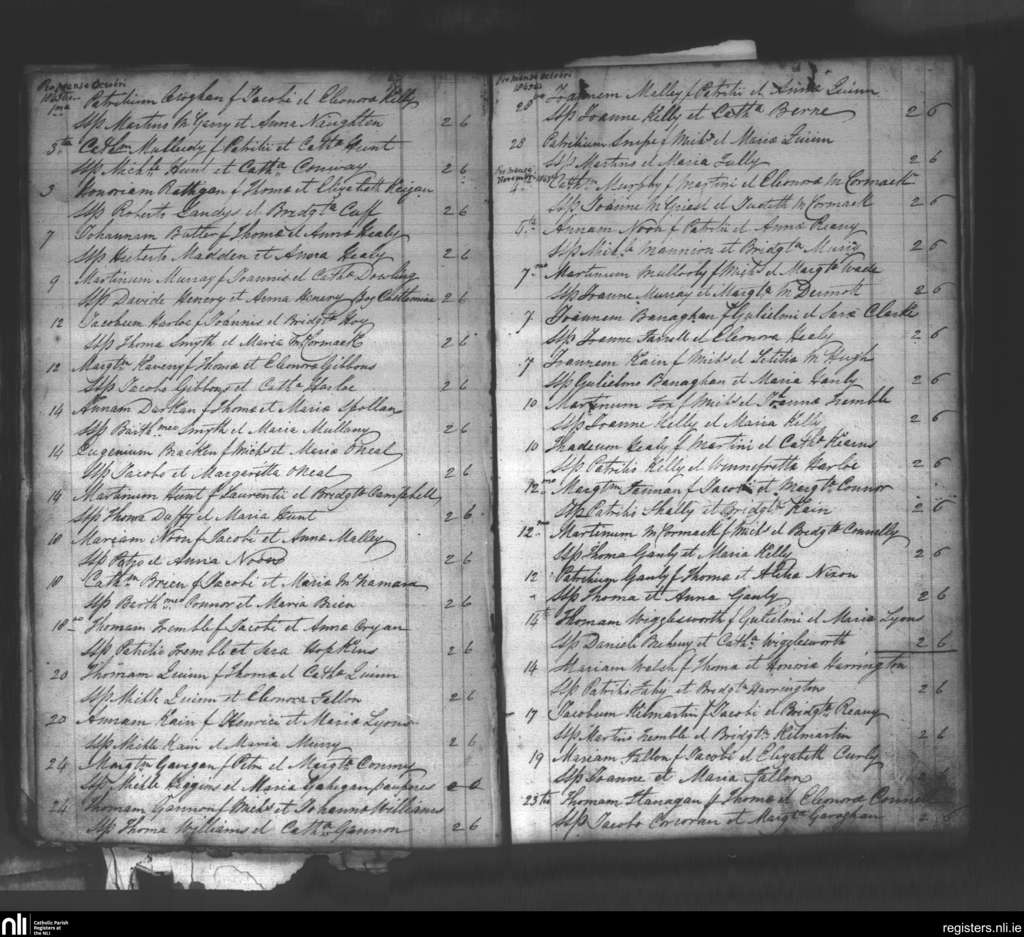 Pro mense Octobri
1845
1mo Patritium Croghan f Jacobi et Eleonora Kelly
Ssp Martino McGarry et Anna Naughton 2 6
3tia Cathm Mulledy f Patritii et Catha Hunt
Ssp Michle Hunt et Catha Conway 2 6
3 Honoriam Rattigan f Thoma et Elizabeth Keigan
Ssp Roberto Sandys et Bredgta Cuff 2 6
7 Johannam Butler f Thoma et Anna Healy
Ssp Huberto Madden et Anna Healy 2 6
9 Martinum Murray f Joannis et Catha Dowling
Ssp Davide Henery et Anna Henery 2 6
12 Jacobum Harloe f Joannis et Bridgta Hoy
Ssp Thoma Smyth et Maria McCormack 2 6
12 Margtm Kaveny f Thoma et Eleonora Gibbons
Ssp Jacobo Gibbons et Catha Harloe 2 6
14 Annam Darkan f Thoma et Maria Spollan
Ssp Barthmeo Smyth et Maria Mullany 2 6
14 Eugenium Bracken f Michs et Maria ONeal
Ssp Jacobo et Margaretta ONeal 2 6
14 Martinum Hunt f Laurentii et Bredgta Campbell
Ssp Thoma Duffy et Maria Hunt 2 6
18 Mariam Noon f Jacobi et Anna Malley
Ssp Petro et Anna Noon 2 6
18 Cathm Brien f Jacobi et Maria McNamara
Ssp Barthmeo Connor et Maria Brien 2 6
18vo Thomam Tremble f Jacobi et Anna Cryan
Ssp Patritio Tremble et Sera Hopkins 2 6
20 Thomam Quinn f Thoma et Catha Quinn
Ssp Michle Quinn et Eleonora Fallon 2 6
20 Annam Kain f Henrici et Maria Lyons
Ssp Michle Kain et Maria Murry 2 6
24 Margtm Gavigan f Petri et Margta Conmy
Ssp Michle Higgins et Maria Gahegan pauperes
24 Thomam Gannon f Michs et Johanna Williams
Ssp Thoma Williams et Catha Gannon 2 6
Pro mense Octobri
1845
28vo Joannem Malley f Patritii et Quinn
Ssp Joanne Kelly et Catha Berne 2 6
28 Patritium Snipe f Michs et Maria Quinn
Ssp Martino et Maria Lally 2 6
Pro mense
Novembri 1845
4 Cathm Murphy f Martini et Eleonora McCormack
Ssp Joanne McGriest et Judith McCormack 2 6
5to Annam Noon f Patritii et Anna Reany
Ssp Michle Mannion et Bridgta Murry 2 6
7mo Martinum Mulloly f Michs et Margta Wade
Ssp Joanne Murray et Margta McDermott 2 6
7 Joannem Banaghan f Gulielmi et Sara Clarke
Ssp Joanne Farrell et Eleonora Healy 2 6
7 Joannem Kain f Michs et Letitia McHugh
Ssp Gulielmo Banaghan et Maria Hanly 2 6
10 Martinum Fox f Michs et Joanna Tremble
Ssp Joanne Kelly et Maria Kelly 2 6
10 Thadeum Healy f Martini et Catha Kearns
Ssp Patritio Kelly et Winnefretta Harloe 2 6
12mo Margtm Fannan f Jacobi et Margta Connor
Ssp Patritio Shally et Bridgta Kain 2 6
12mo Martinum McCormack f Michs et Bridgta Connelly
Ssp Thoma Ganly et Maria Kelly 2 6
12 Patritium Ganly f Thoma et Alitia Nixon
Ssp Thoma et Anna Ganly 2 6
14to Thomam Wigglesworth f Gulielmi et Maria Lyons
Ssp Daniele Bucheny et Catha Wigglesworth 2 6
14 Mariam Welsh f Thoma et Honoria Harrington
Ssp Patritio Fahy et Bredgta Harrington 2 6
17 Jacobum Kilmartin f Jacobi et Bridgta Reany
Ssp Martino Tremble et Bridgta Kilmartin 2 6
19 Mariam Fallon f Jacobi et Elizabeth Curly
Ssp Joanne et Maria Fallon 2 6
23tia Thomam Flanagan f Thoma et Eleonora
Ssp Jacobo Corcoran et Margta Garaghan 2 6
nli
Catholic Parish
Registers at
the NLI
registers.nli.ie